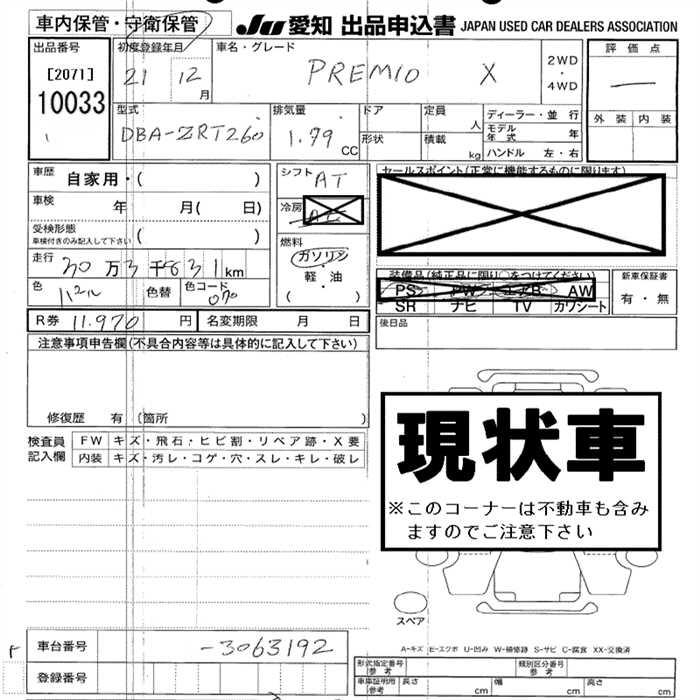 車内保管・守衛保管 JU 愛知 出品申込書 JAPAN USED CAR DEALERS ASSOCIATION
出品番号 初度登録年月 車名・グレード 評価点
[2071] 21 12月 PREMIO X 2WD・4WD
10033 外装 内装
型式 排気量 ドア 定員 人 ディーラー・並行
DBA-ZRT260 1.79 CC 形状 積載 kg モデル年式 年
ハンドル 左・右
車歴 自家用・( ) シフト AT セールスポイント(正常に機能するものに限ります)
車検 年 月( 日) 冷房 AC
受検形態 ( )
車検付きのみ記入して下さい
燃料 ガソリン・軽・油 ( )
走行 30万3千831km
色 パール 色替 色コード 070
装備品(純正品に限り○をつけてください) 新車保証書
PS PW エアB AW 有・無
SR ナビ TV カワシート
R券 11.970円 名変期限 月 日 後日品
注意事項申告欄(不具合内容等は具体的に記入して下さい)
修復歴 有 (箇所 )
検査員記入欄 FW キズ・飛石・ヒビ割・リペア跡・X要
内装 キズ・汚レ・コゲ・穴・スレ・キレ・破レ
現状車
※このコーナーは不動車も含み
ますのでご注意下さい
スペア
A-キズ E-エクボ U-凹み W-補修跡 S-サビ C-腐食 XX-交換済
F 車台番号 -3063192
登録番号
形式指定番号 参考 類別区分番号 参考
車庫証明用 参考 長さ cm 幅 cm 高さ cm